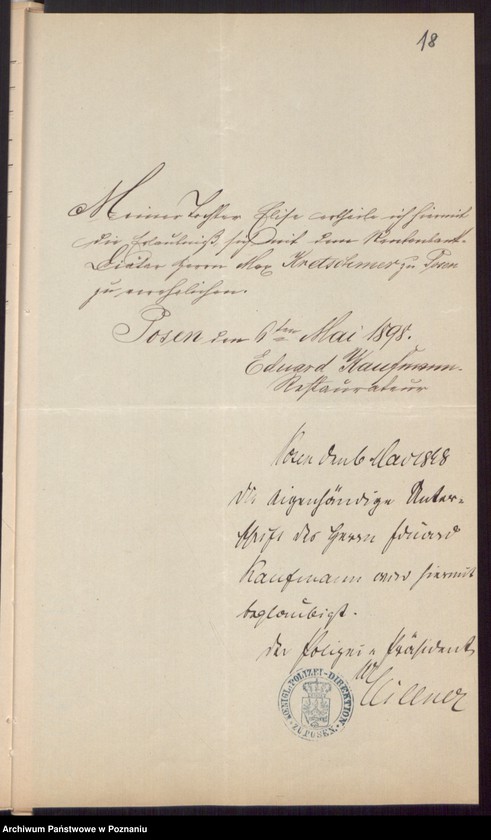 18
Meiner Tochter Elise ertheile ich hiermit
die Erlaubniß sich mit dem Rentenbank-
Diätar Herrn Max Kretschmer zu
zu verehelichen.
Posen den 6ten Mai 1898.
Eduard Kaufmann.
Restaurateur
Posen den 6 Mai 1898
Die eigenhändige Unter-
schrift des Herrn Eduard
Kaufmann wird hiermit
beglaubigt.
Der Polizei-Präsident
KÖNIGL. POLIZEI-DIREKTION
ZU POSEN.
Archiwum Państwowe w Poznaniu